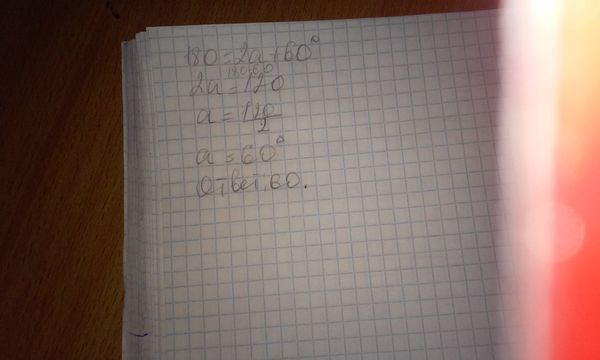 180=2a+60°
180-60
2a=120
a=120/2
a=60°
Ответ: 60.